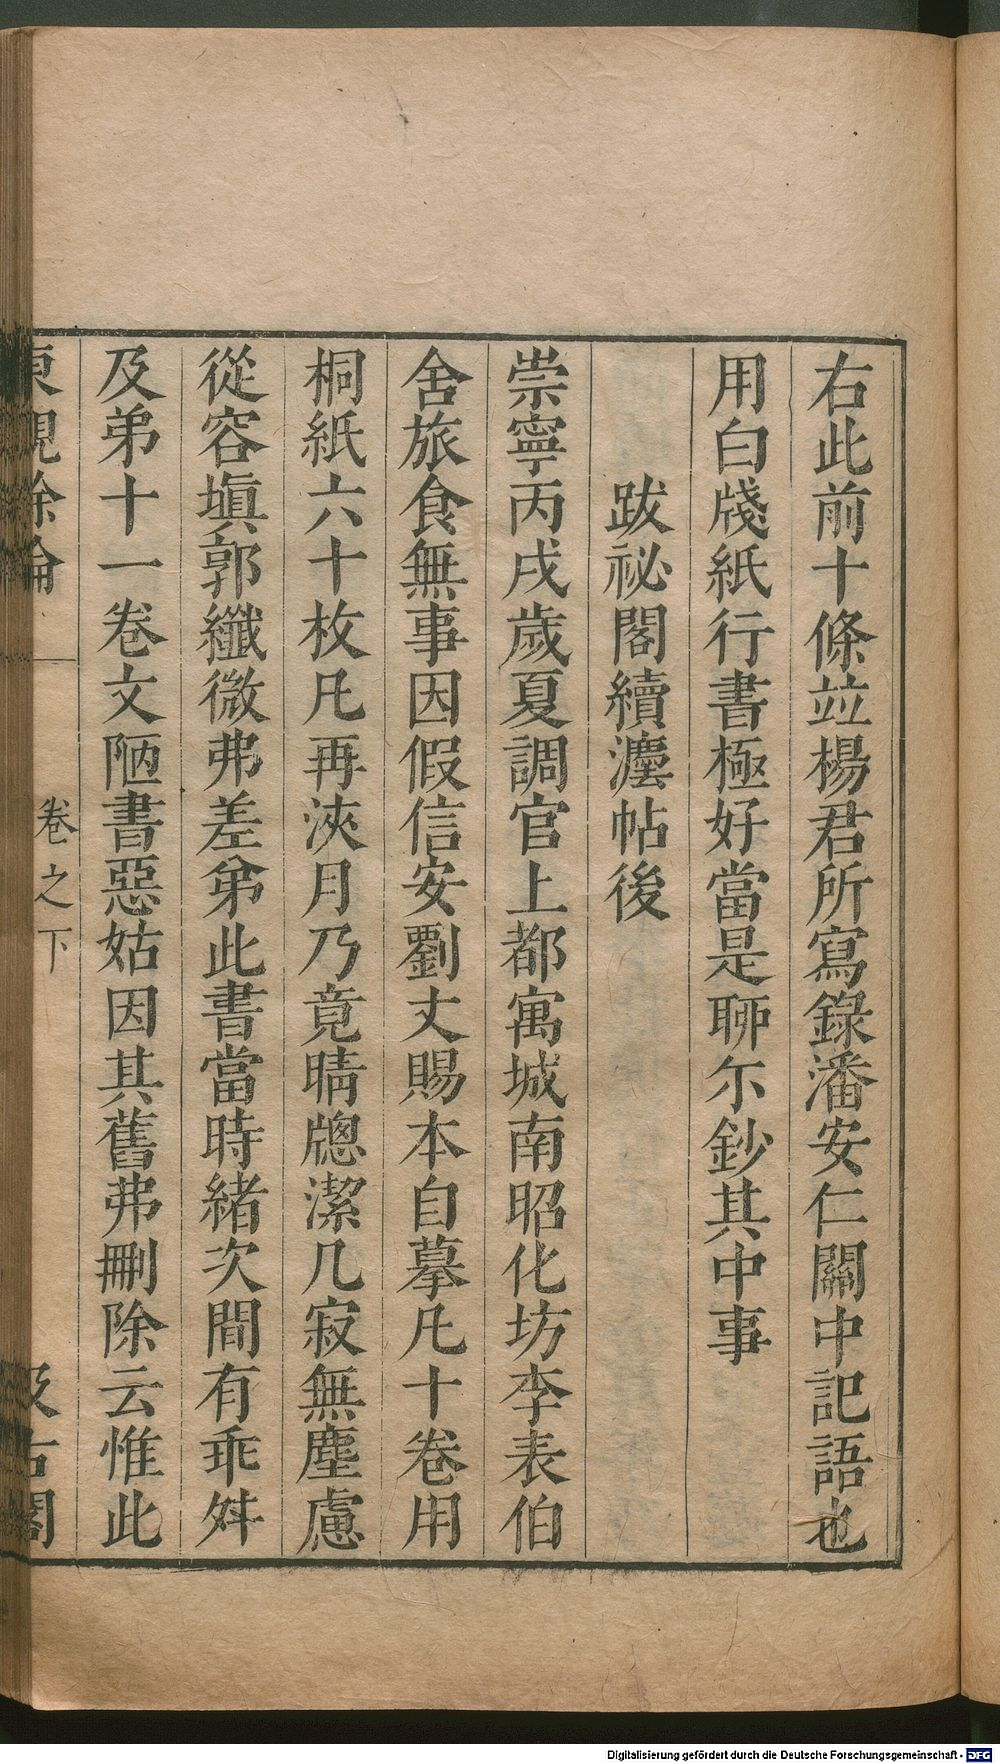 右此前十條竝楊君所寫錄潘安仁關中記語也
用白牋紙行書極好當是聊尒鈔其中事
跋祕閣續灋帖後
崇寧丙戌歲夏調官上都寓城南昭化坊李表伯
舍旅食無事因假信安劉丈賜本自摹凡十卷用
桐紙六十枚凡再浹月乃竟晴牎潔几寂無塵慮
從容塡郭纖微弗差弟此書當時緒次間有乖舛
及弟十一卷文陋書惡姑因其舊弗刪除云惟此
東觀餘論
卷之下
汲古閣
Digitalisierung gefördert durch die Deutsche Forschungsgemeinschaft - DFG